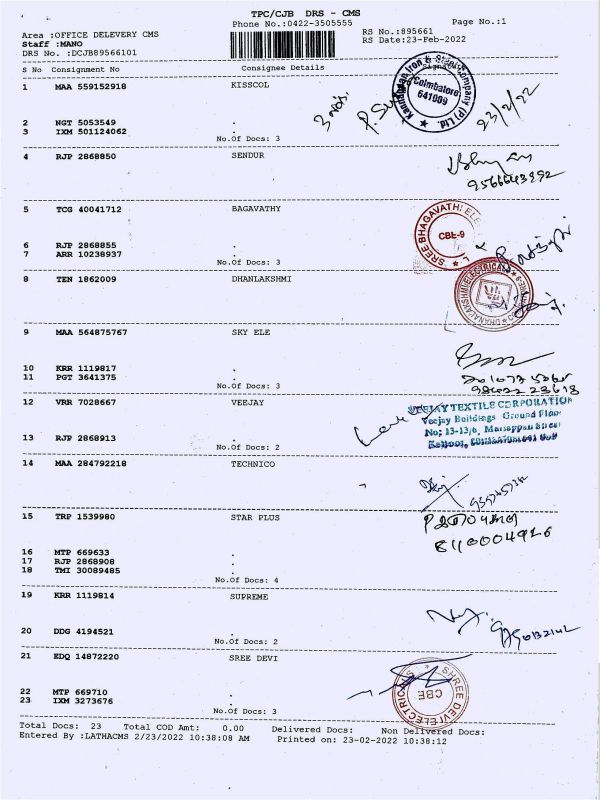 TPC/CJB DRS - CMS
Phone No.:0422-3505555
Page No.:1
Area :OFFICE DELEVERY CMS
RS No.:895661
Staff :MANO
RS Date:23-Feb-2022
DRS No. :DCJB89566101
S No Consignment No Consignee Details
1 MAA 559152918 KISSCOL
Coimbatore
641009
23/2/22
2 NGT 5053549 .
3 IXM 501124062 .
No.Of Docs: 3
4 RJP 2868850 SENDUR
9566643992
5 TCG 40041712 BAGAVATHY
SREE BHAGAVATHI ELE
CBE-9
6 RJP 2868855 .
7 ARR 10238937 .
No.Of Docs: 3
8 TEN 1862009 DHANLAKSHMI
DHANALAKSHMI ELECTRICALS
9 MAA 564875767 SKY ELE
10 KRR 1119817 .
11 PGT 3641375 .
No.Of Docs: 3
12 VRR 7028667 VEEJAY
VEEJAY TEXTILE CORPORATION
Veejay Buildings Ground Floor
No; 13-13/6,
13 RJP 2868913 .
No.Of Docs: 2
14 MAA 284792218 TECHNICO
15 TRP 1539980 STAR PLUS
8110004926
16 MTP 669633 .
17 RJP 2868908 .
18 TMI 30089485 .
No.Of Docs: 4
19 KRR 1119814 SUPREME
20 DDG 4194521 .
No.Of Docs: 2
21 EDQ 14872220 SREE DEVI
SHREE DEVI ELECTRICALS
CBE
22 MTP 669710 .
23 IXM 3273676 .
No.Of Docs: 3
Total Docs: 23 Total COD Amt: 0.00 Delivered Docs: Non Delivered Docs:
Entered By :LATHACMS 2/23/2022 10:38:08 AM Printed on: 23-02-2022 10:38:12